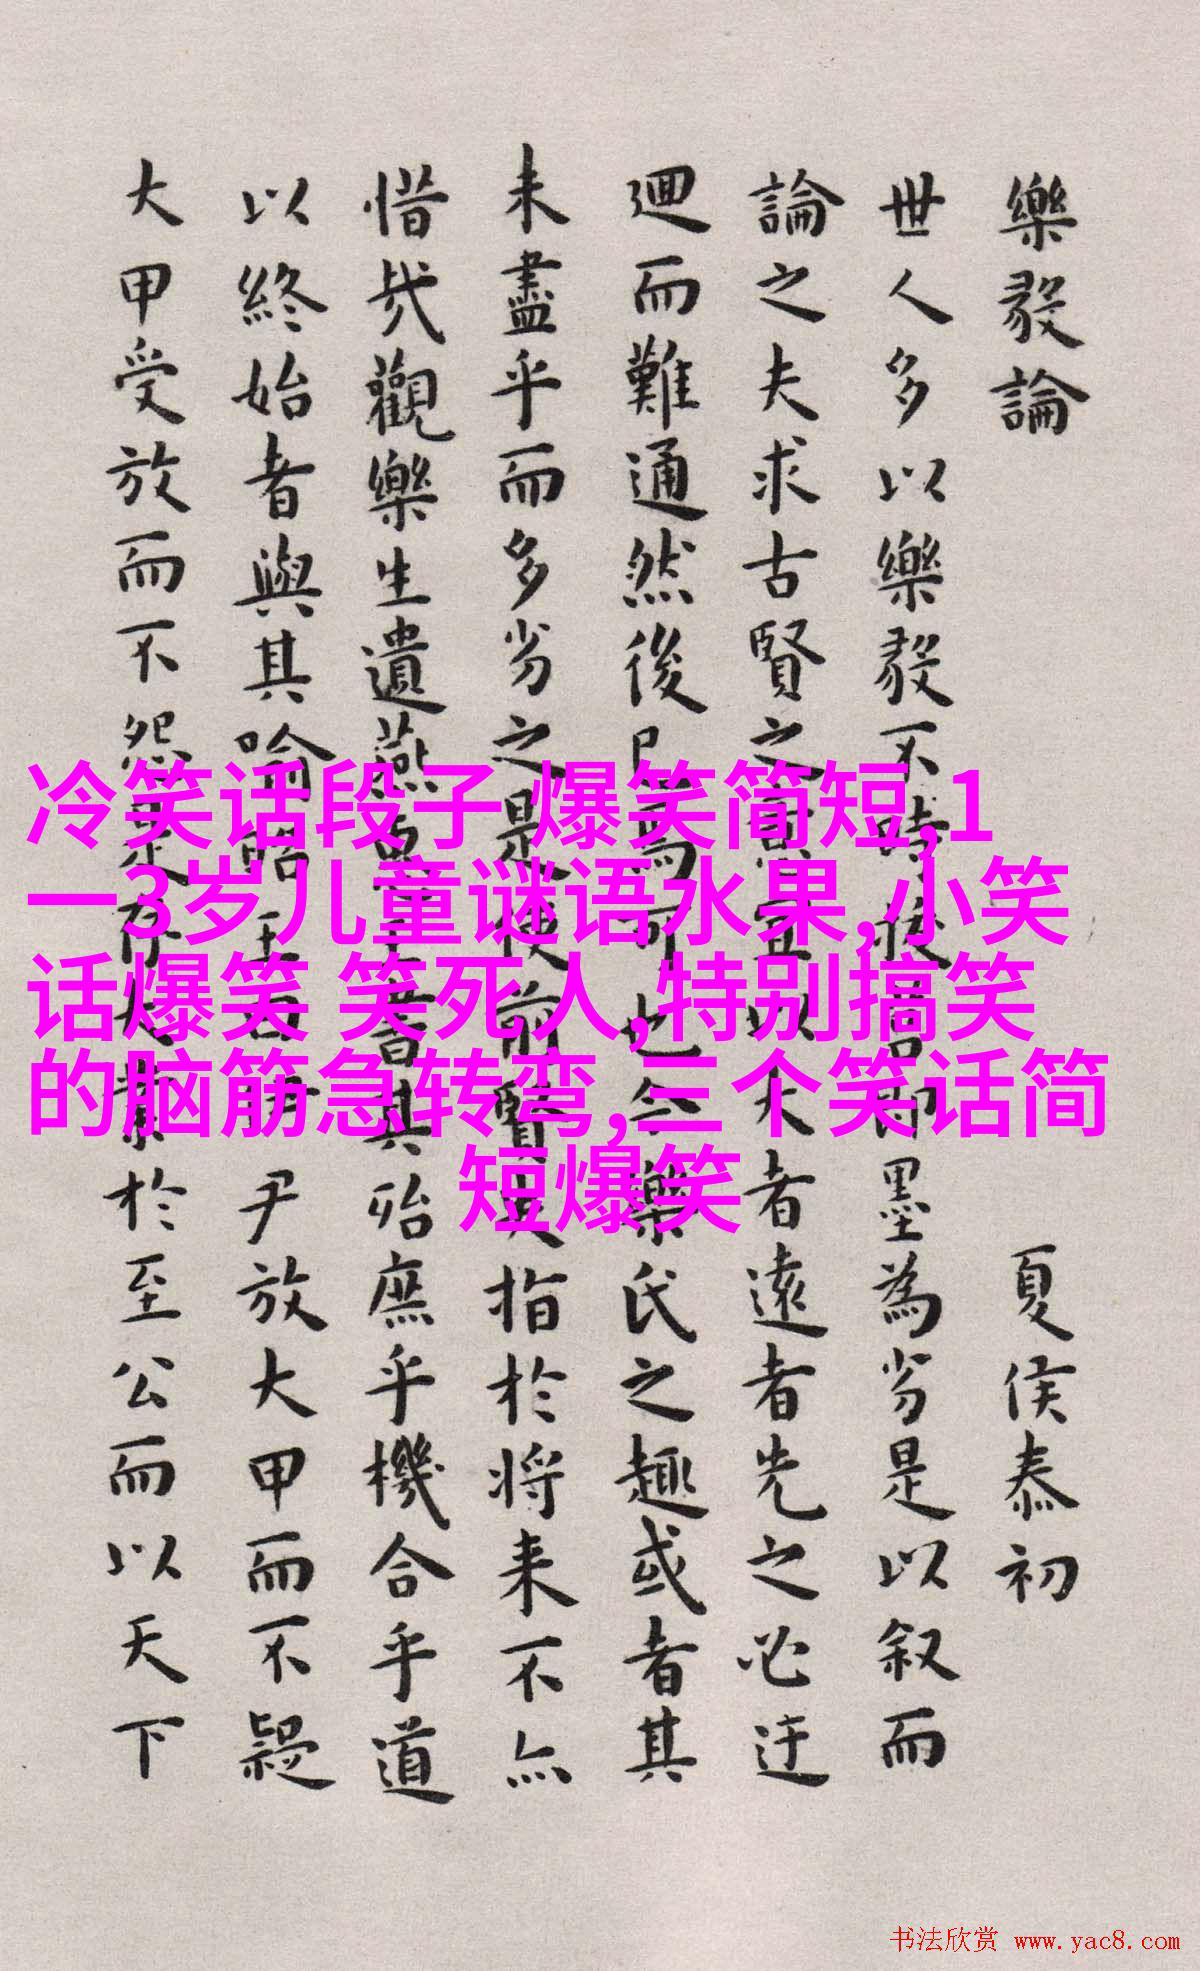 樂毅論 夏侯泰初
世人多以樂毅不時拔營即墨為劣是以叙而
論之夫求古賢之意宜以大者遠者先之必迂
迴而難通然後已焉可也今樂氏之趣或者其
未盡乎而多劣之是使前賢失指於将来不亦
惜哉觀樂生遺燕惠王書其殆庶乎機合乎道
以終始者與其喻昭王曰伊尹放大甲而不疑
大甲受放而不怨是存大業於至公而以天下
冷笑话段子 爆笑简短,1
一3岁儿童谜语水果,小笑
话爆笑 笑死人,特别搞笑
的脑筋急转弯,三个笑话简
短爆笑
书法欣赏 www.yac8.com